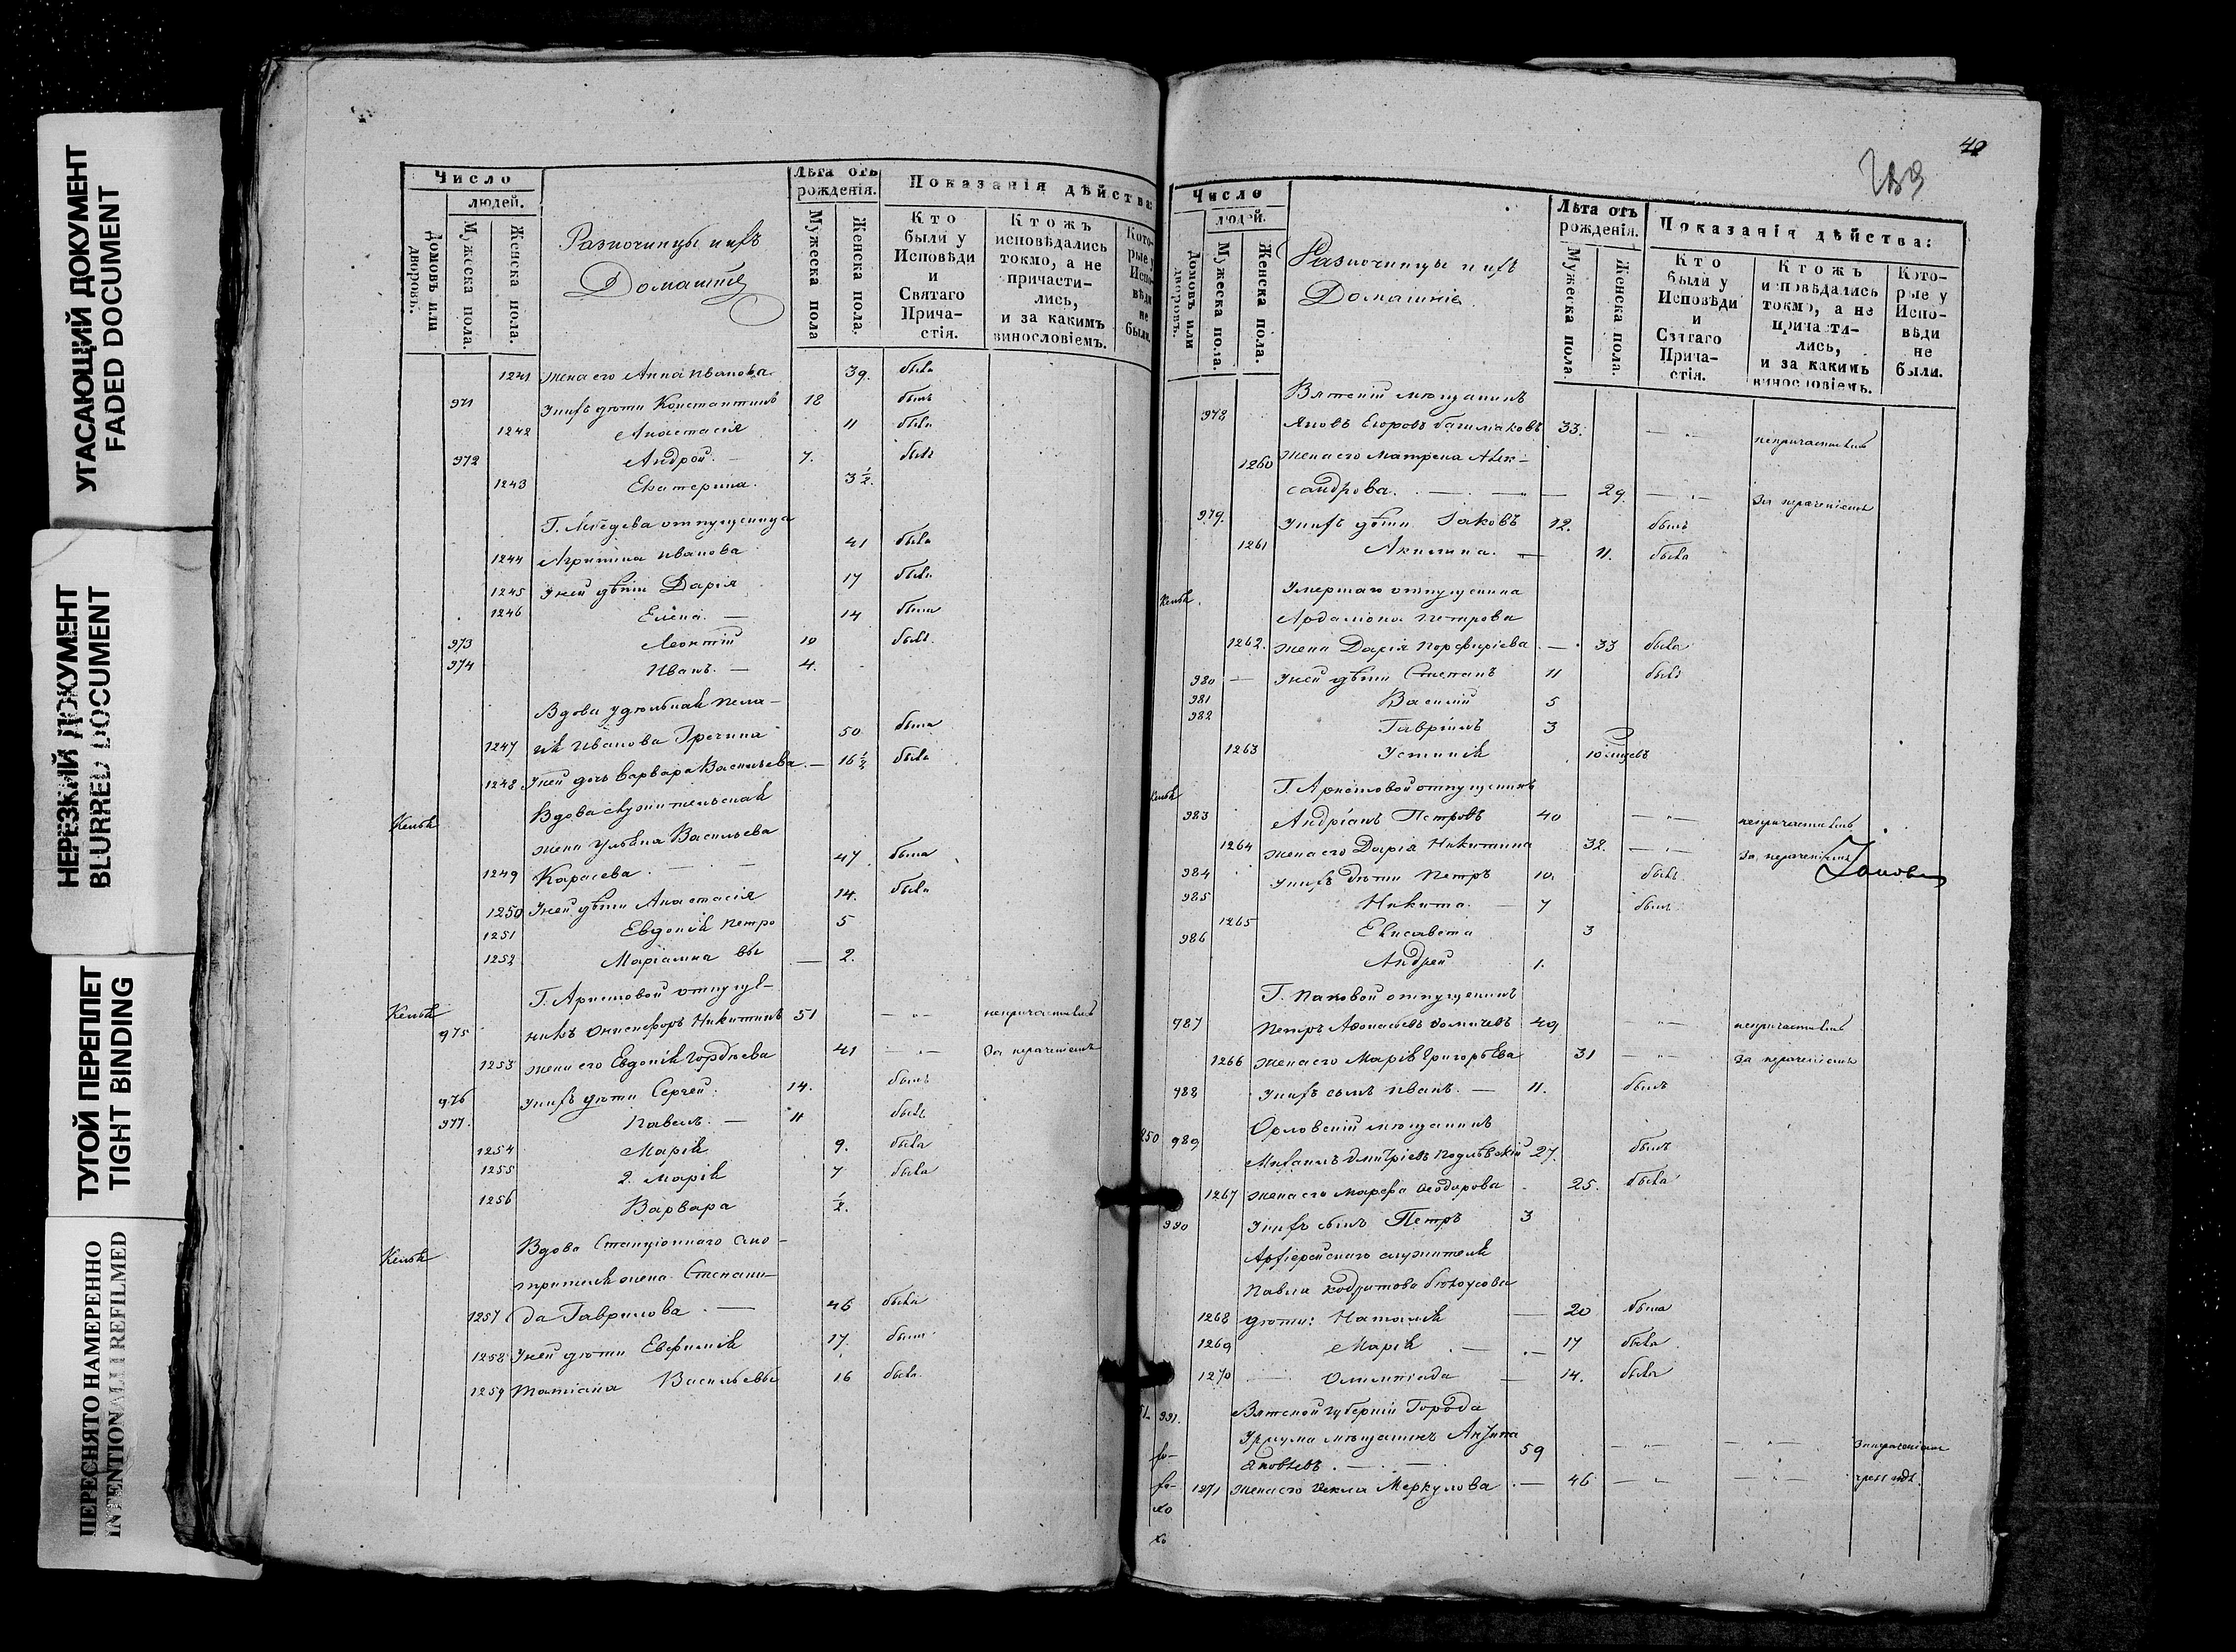 УГАСАЮЩИЙ ДОКУМЕНТ
FADED DOCUMENT
НЕРЕЗКИЙ ДОКУМЕНТ
BLURRED DOCUMENT
ТУГОЙ ПЕРЕПЛЕТ
TIGHT BINDING
ПЕРЕСНЯТО НАМЕРЕННО
INTENTIONALLI REFILMED
Число
людей.
Домовъ или дворовъ.
Мужеска пола.
Женска пола.
Разночинцы и ихъ
Домашніе
Лѣта отъ
рожденія.
Мужеска пола
Женска пола.
Показанія дѣйства:
Кто
были у
Исповѣди
и
Святаго
Прича-
стія.
Ктожъ
исповѣдались
токмо, а не
причасти-
лись,
и за какимъ
винословіемъ.
Кото-
рые у
Испо-
вѣди
не
были.
1241 жена его Анна Иванова 39. была
971 У нихъ дѣти Константинъ 18 былъ
1242 Анастасія 11 была
972 Андрей. 7. былъ
1243 Екатерина. 3 ½.
Г. отпущеница
1244 Агрипина Иванова 41 была
1245 У ней дѣти Дарія 17 была
1246 Елена. 14 была
973 Леонтій 10 былъ.
974 Иванъ. 4.
Вдова удѣльная Пела-
1247 гія Иванова 50 была
1248 У ней дочь Варвара Васильева. 16 ½ была
Вдова служительская
жена Ульяна Васильева
1249 Карасева. 47 была
1250 У ней дѣти Анастасія 14. была
1251 Евдокія Петро 5
1252 Маріамна вы 2.
Г. отпуще-
975 никъ Онисифоръ Никитинъ 51 непричастился
1253 жена его Евдокія Гордѣева 41 за нераченіемъ
976 У нихъ дѣти Сергей 14. былъ
977. Павелъ. 11 былъ
1254 Марія 9. была
1255 2. Марія 7 была
1256 Варвара ½.
Вдова Станціоннаго смо-
трителя жена Степани-
1257 да Гаврилова. 46 была
1258 У ней дѣти Евфимія 17. была
1259 Татіана Васильевы 16 была
40
Число
людей.
Домовъ или дворовъ.
Мужеска пола.
Женска пола.
Разночинцы и ихъ
Домашніе.
Лѣта отъ
рожденія.
Мужеска пола.
Женска пола.
Показанія дѣйства:
Кто
были у
Исповѣди
и
Святаго
Прича-
стія.
Ктожъ
исповѣдались
токмо, а не
причасти-
лись,
и за какимъ
винословіемъ.
Кото-
рые у
Испо-
вѣди
не
были.
Вятскій мещанинъ
978 Яковъ Егоровъ Башмаковъ 33. непричастился
1260 жена его Матрена Алек-
сандрова. 29. за нераченіемъ
979. У нихъ дѣти Іаковъ 12. былъ
1261 Акилина. 11. была
Умершаго отпущеника
Ардаліона Петрова
1262. жена Дарія Порфиріева 33 была
980 У ней дѣти Степанъ 11 былъ
981 Василій 5
982 Гавріилъ 3
1263 Устинія 10
Г. отпущеникъ
983 Андріанъ Петровъ 40 непричастился
1264 жена его Дарія Никитина 32. за нераченіемъ
984 У нихъ дѣти Петръ 10. былъ
985 Никита. 7 былъ
1265 Елисавета 3
986 Андрей 1.
Г. Пановой отпущеникъ
987 Петръ 49 непричастился
1266 жена его Марія Григорьева 31 за нераченіемъ
988 У нихъ сынъ Иванъ. 11. былъ
Орловскій мещанинъ
250 989 Михаилъ Дмитріевъ 27. былъ
1267 жена его Марѳа Ѳеодорова 25. была
990 У нихъ сынъ Петръ 3
Архіерейскаго служителя
Павла
1268 дѣти: Наталія 20 была
1269 Марія 17 была
1270 Олимпіада 14. была
991. Вятской губерніи Города
Уржума мещанинъ
Яковлевъ. 59 за нераченіемъ
1271 жена его Ѳекла Меркулова 46